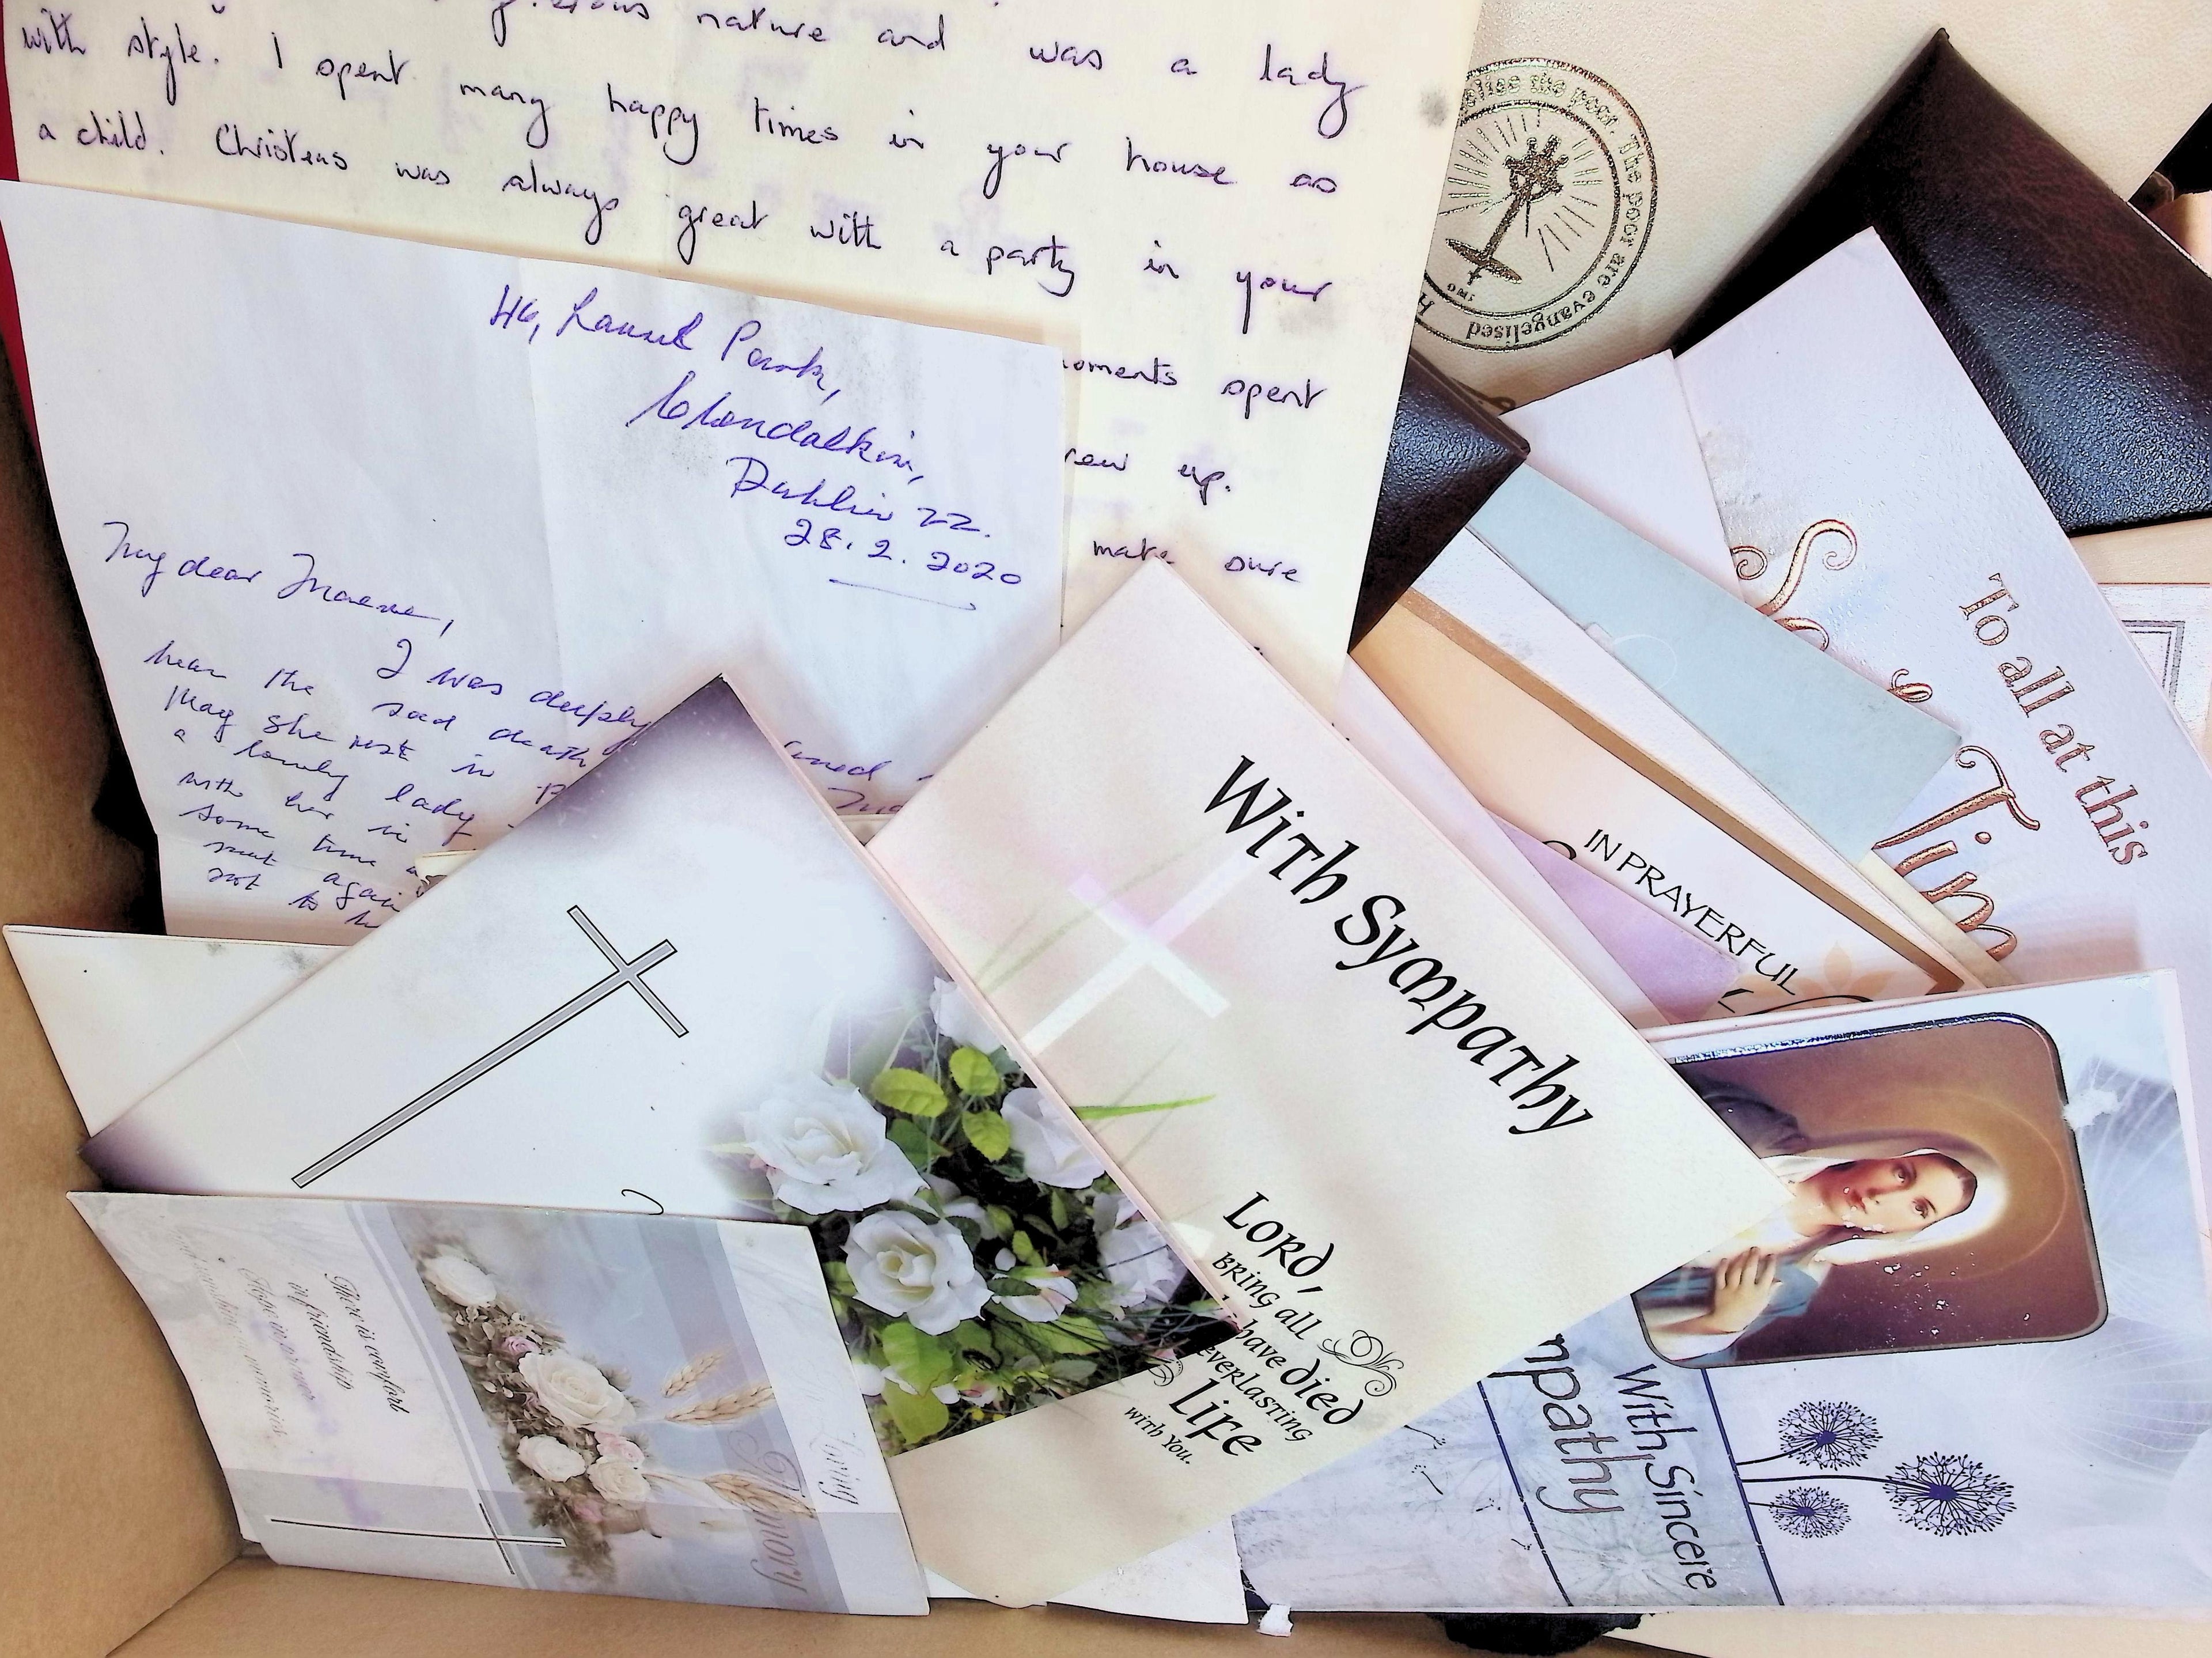 nature and was a lady
with style. I spent many happy times in your house as
a child. Christmas was always great with a party in your
moments spent
up.
make sure
46, Laurel Park,
Clondalkin,
Dublin 22.
28.2.2020
My dear Maeve,
I was deeply
hear the sad death
May she rest in
a lovely lady
with her in
some time
not to
the poor. The poor are evangelised
OMI
To all at this
Tim
IN PRAYERFUL
With Sympathy
Lord,
bring all
have died
everlasting
Life
with You.
mpathy
With Sincere
There is comfort
in friendship
Hope in prayer
memories.
Loving
Memory